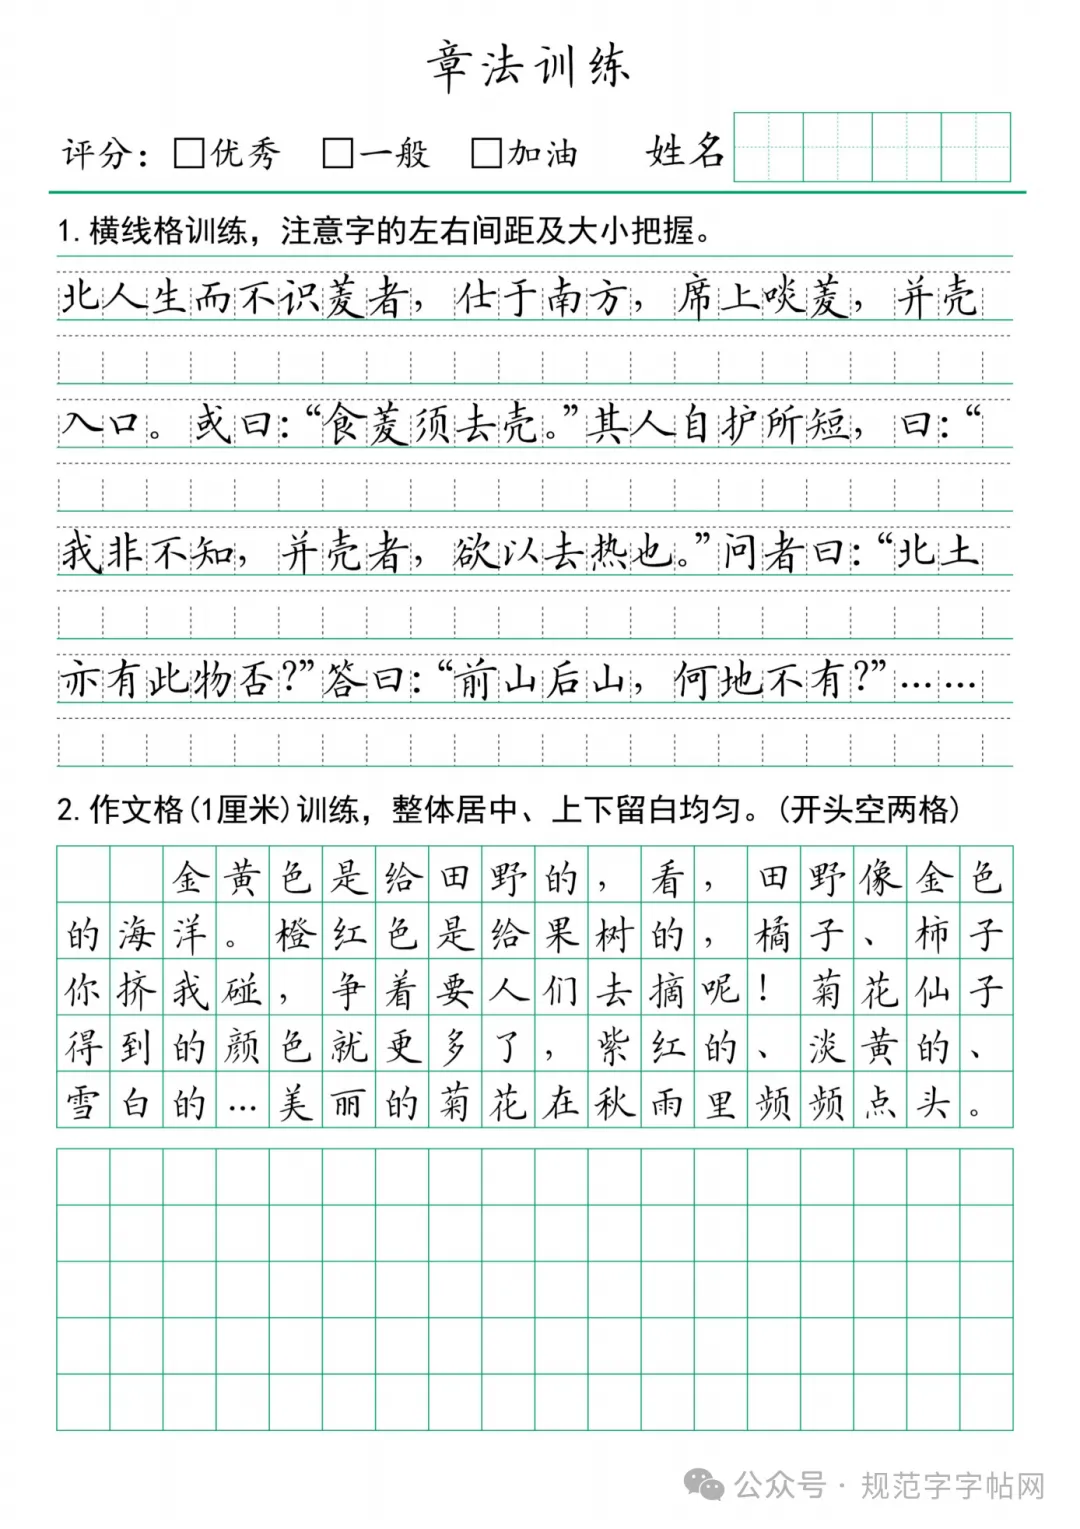 章法训练
评分：□优秀 □一般 □加油 姓名
1.横线格训练，注意字的左右间距及大小把握。
北人生而不识菱者，仕于南方，席上啖菱，并壳
入口。或曰：“食菱须去壳。”其人自护所短，曰：“
我非不知，并壳者，欲以去热也。”问者曰：“北土
亦有此物否？”答曰：“前山后山，何地不有？”……
2.作文格(1厘米)训练，整体居中、上下留白均匀。(开头空两格)
金黄色是给田野的，看，田野像金色
的海洋。橙红色是给果树的，橘子、柿子
你挤我碰，争着要人们去摘呢！菊花仙子
得到的颜色就更多了，紫红的、淡黄的、
雪白的…美丽的菊花在秋雨里频频点头。
公众号·规范字字帖网